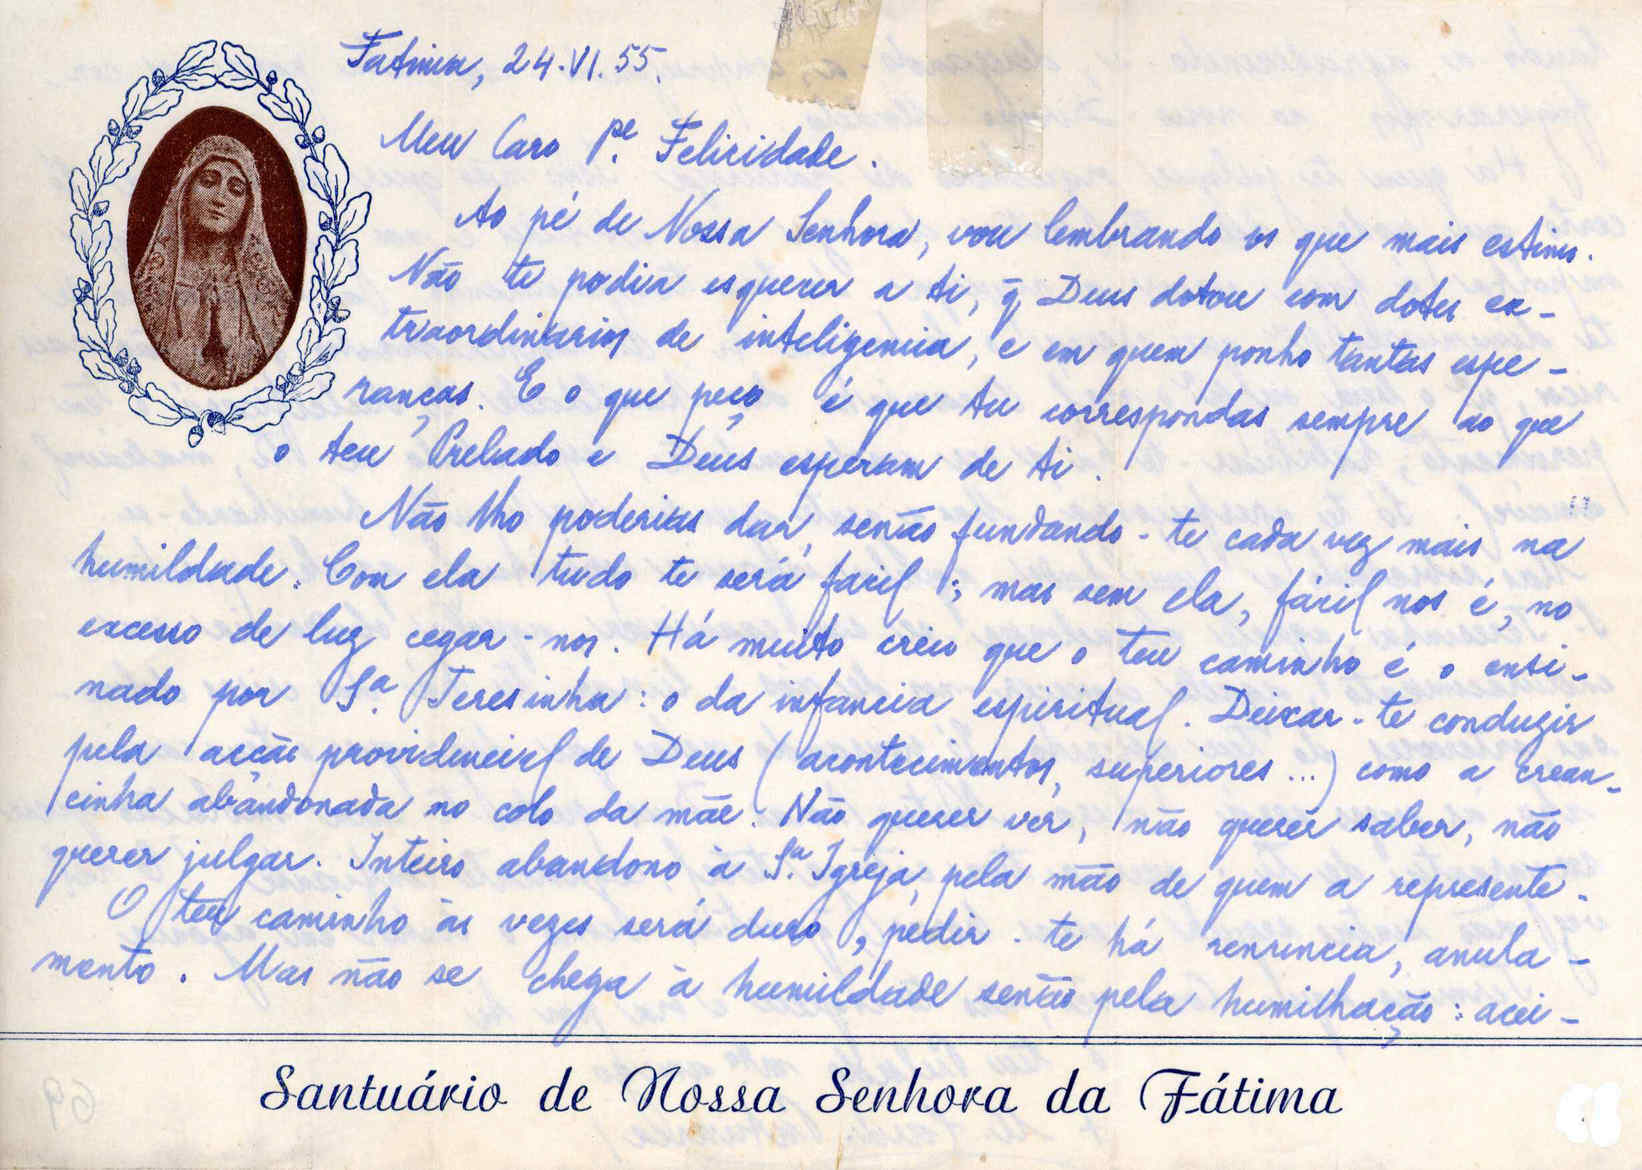 Fatima, 24.VI.55.
Meu Caro Pe. Felicidade.
Ao pé de Nossa Senhora, vou lembrando os que mais estimo.
Não te podia esquecer a ti, q̃ Deus dotou com dotes ex-
traordinarios de inteligencia, e em quem ponho tantas espe-
ranças. E o que peço é que tu correspondas sempre ao que
o teu Prelado e Deus esperam de ti.
Não lho poderias dar, senão fundando-te cada vez mais na
humildade. Com ela tudo te será facil; mas sem ela, fácil nos é, no
excesso de luz cegar-nos. Há muito creio que o teu caminho é o ensi-
nado por Sª. Teresinha: o da infancia espiritual. Deixar-te conduzir
pela acção providencial de Deus (acontecimentos, superiores...) como a crean-
cinha abandonada no colo da mãe. Não querer ver, não querer saber, não
querer julgar. Inteiro abandono à Sª. Igreja, pela mão de quem a represente.
O teu caminho às vezes será duro, pedir-te há renuncia, anula-
mento. Mas não se chega à humildade senão pela humilhação: acei-
Santuário de Nossa Senhora da Fátima